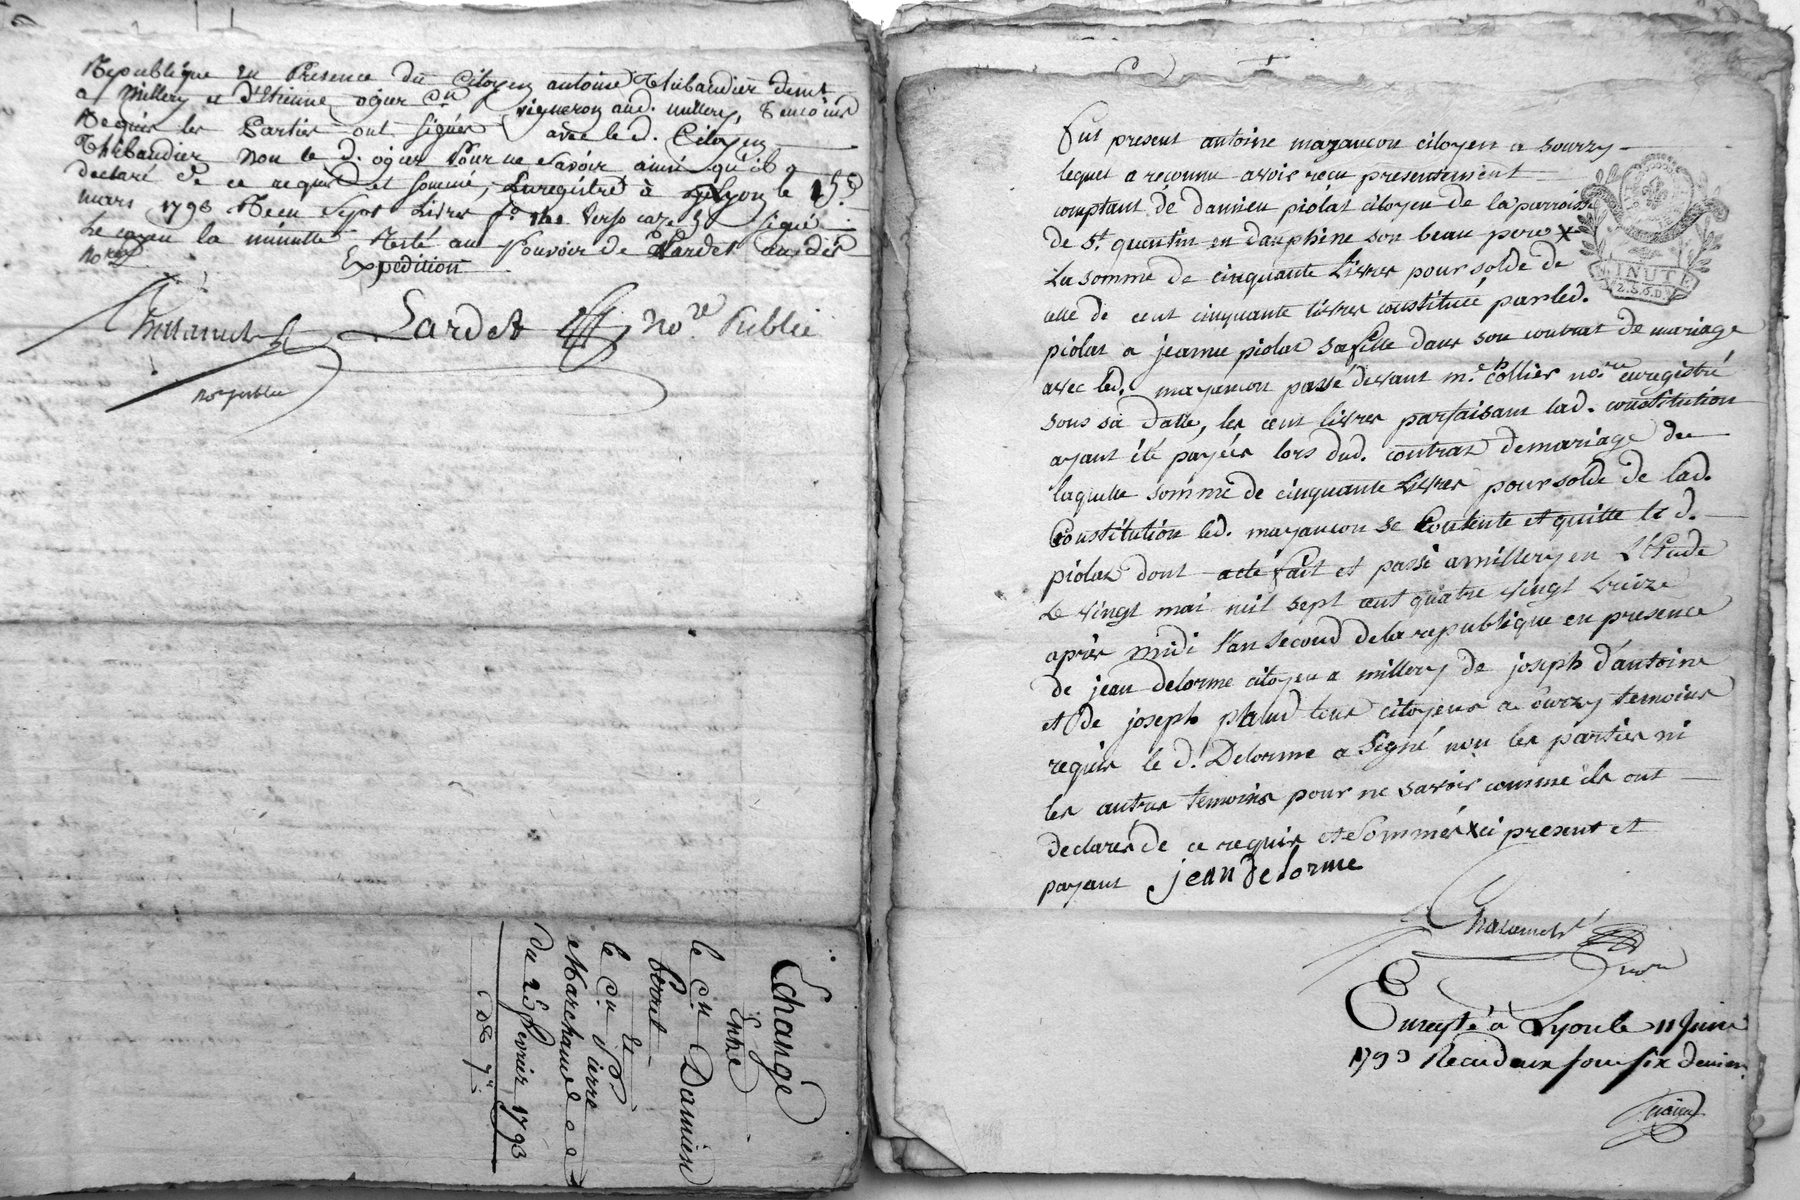 Republique en Presence du Citoyen antoine Thibaudier demt
a Millery et d'Etienne ogier Cn vigneron aud. millery, Temoins
Requis les Parties ont signés avec le d. Citoyen
Thibaudier non le d. ogier Pour ne Savoir ainsi qu'il a
declaré de ce requis et sommé, Enregistré à Lyon le 15e
mars 1793 Recu Sept Livres fo verso case 5 Signé
Le cayeu la minutte Resté au Pouvoir de Lardet
nore Expedition
Lardet nore Public
nore public
Echange
Entre
le Cn Damien
et
le Cn Pierre
Marchand
du 25 fevrier 1793
Fut present antoine mazancon citoyen a sourzy
lequel a reconnu avoir recu presentement
comptant de damien piolat citoyen de la parroisse
de St quentin en dauphine son beau pere x
La somme de cinquante Livres pour solde de
celle de cent cinquante livres constituée par led.
piolat a jeanne piolat sa fille dans son contrat de mariage
avec led. mazancon passé devant me Collier nore enregistré
sous sa datte, les cent livres parfaisant lad. constitution
ayant été payées lors dud. contrat de mariage de
laquelle somme de cinquante Livres pour solde de lad.
Constitution led. mazancon se Contente et quitte le d.
piolat dont acte fait et passé a millery en L'Etude
Le vingt mai mil sept cent quatre vingt treize
après midi l'an second de la republique en presence
de jean delorme citoyen a millery de joseph d'antoine
et de joseph plaud tous citoyens a sourzy temoins
requis le d. Delorme a signé non les parties ni
les autres temoins pour ne savoir comme ils ont
declarés de ce requis et sommés x ci present et
payant jean delorme
Enregté à Lyon le 11 Juin
1793 Recu deux sous six deniers